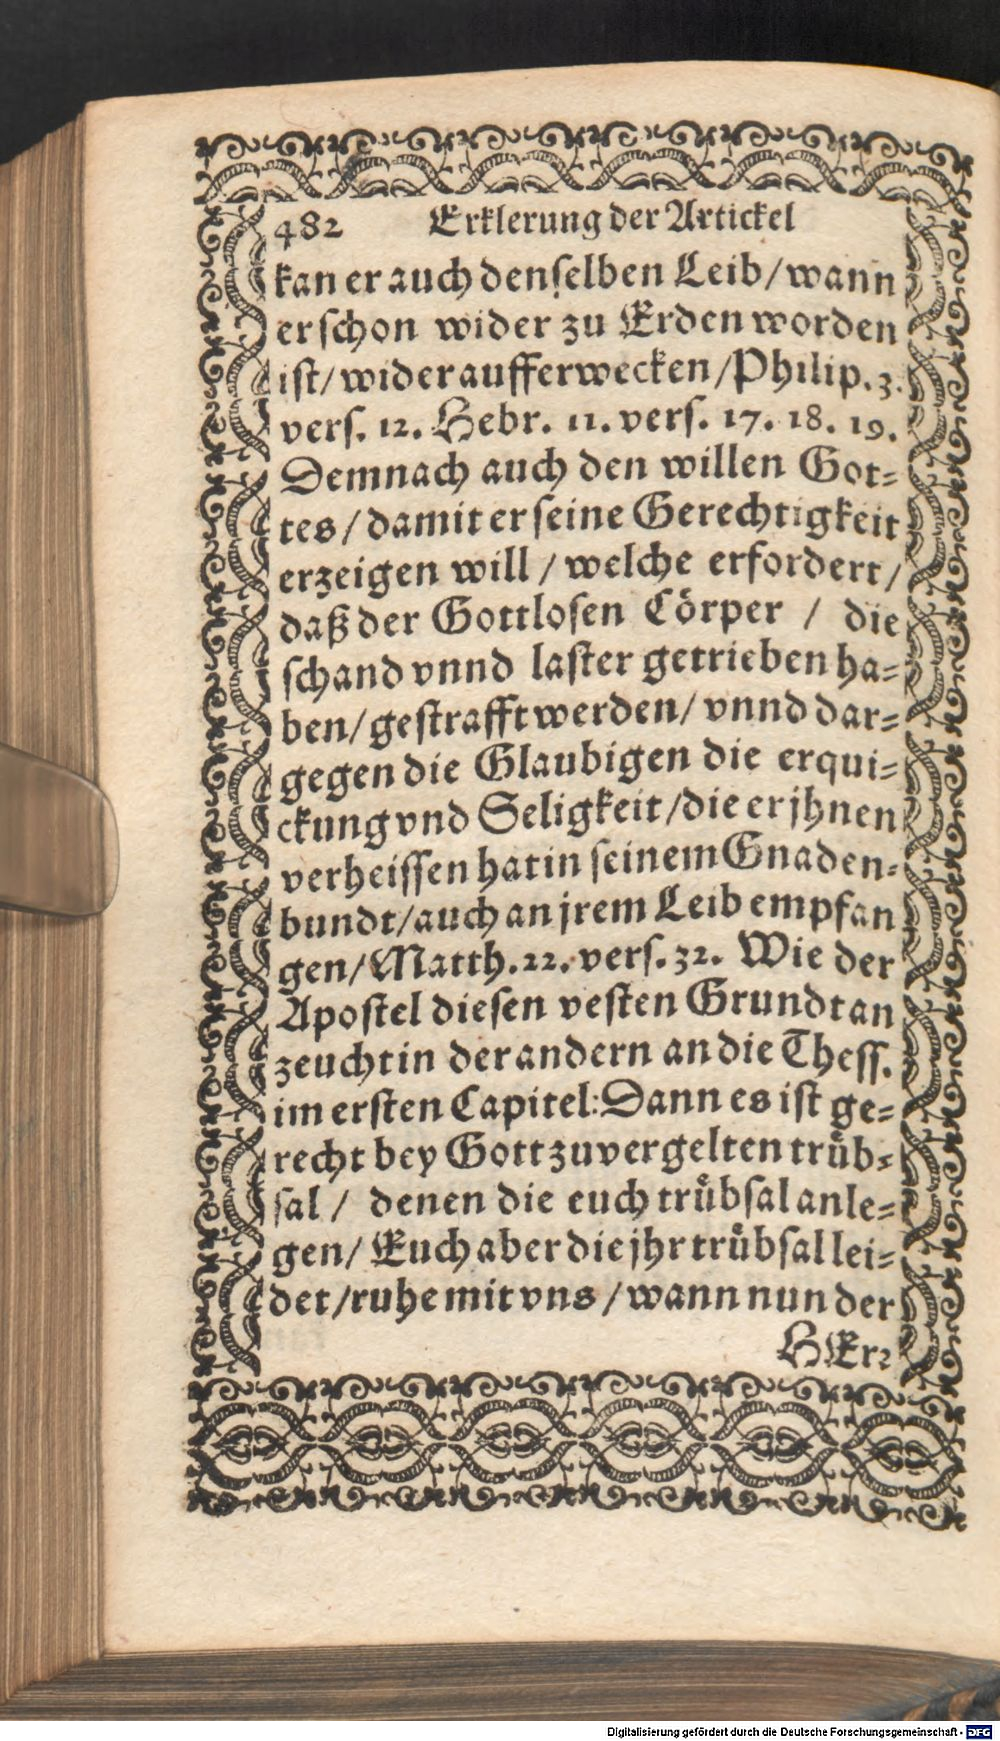 482 Erklerung der Artickel
kan er auch denſelben Leib/ wann
er ſchon wider zu Erden worden
iſt/ wider aufferwecken/ Philip. 3.
verſ. 12. Hebr. 11. verſ. 17. 18. 19.
Demnach auch den willen Got⸗
tes/ damit er ſeine Gerechtigkeit
erzeigen will/ welche erfordert/
daß der Gottloſen Cörper / die
ſchand vnnd laſter getrieben ha⸗
ben/ geſtrafft werden/ vnnd dar⸗
gegen die Glaubigen die erqui⸗
ckung vnd Seligkeit/ die er jhnen
verheiſſen hat in ſeinem Gnaden⸗
bundt/ auch an jrem Leib empfan
gen/ Matth. 22. verſ. 32. Wie der
Apoſtel dieſen veſten Grundt an
zeucht in der andern an die Theſſ.
im erſten Capitel: Dann es iſt ge⸗
recht bey Gott zuvergelten truͤb⸗
ſal / denen die euch truͤbſal anle⸗
gen/ Euch aber die jhr truͤbſal lei⸗
det/ ruhe mit vns / wann nun der
HErꝛ
Digitalisierung gefördert durch die Deutsche Forschungsgemeinschaft - DFG